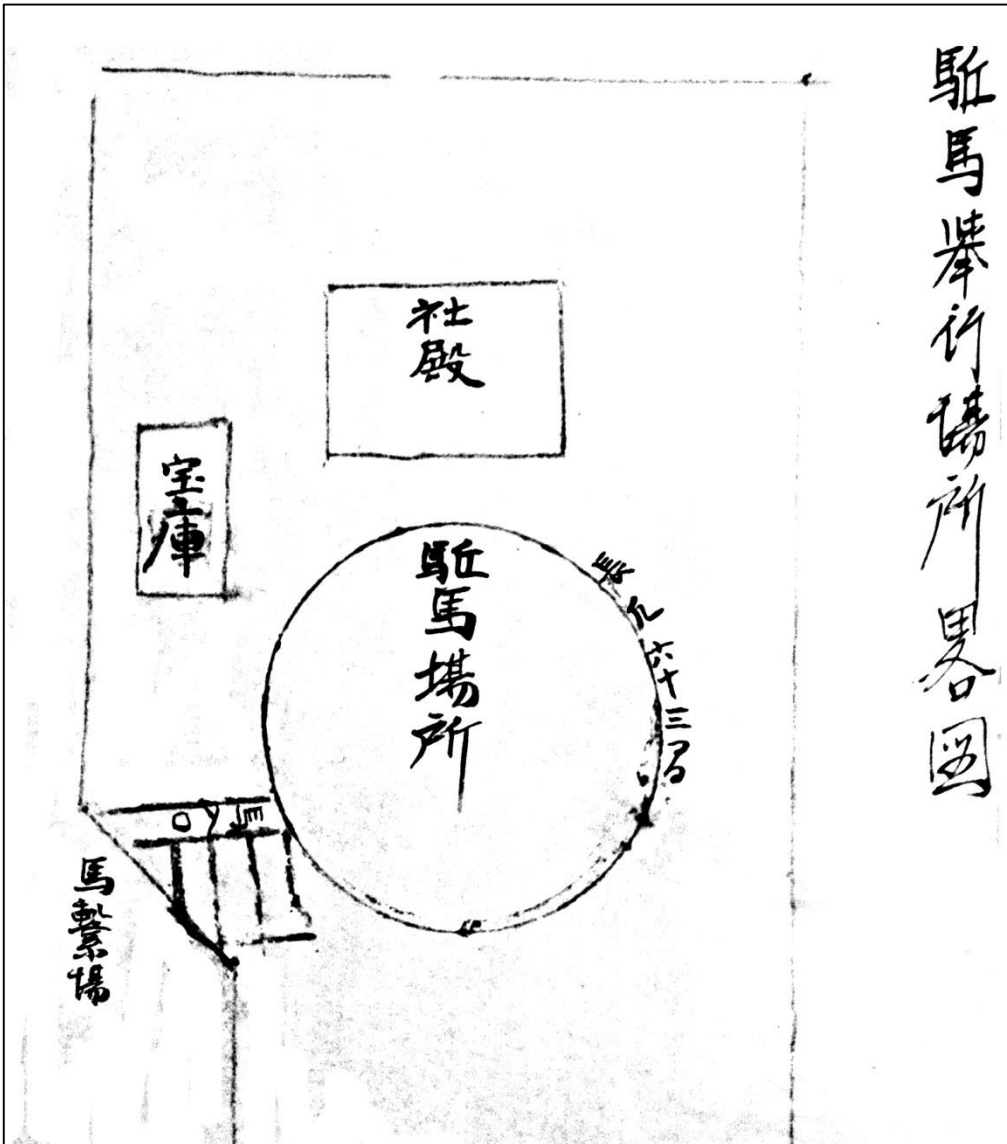 駈馬舉行場所畧図
社殿
宝庫
駈馬場所
長凡六十三間
馬入口
馬繋場